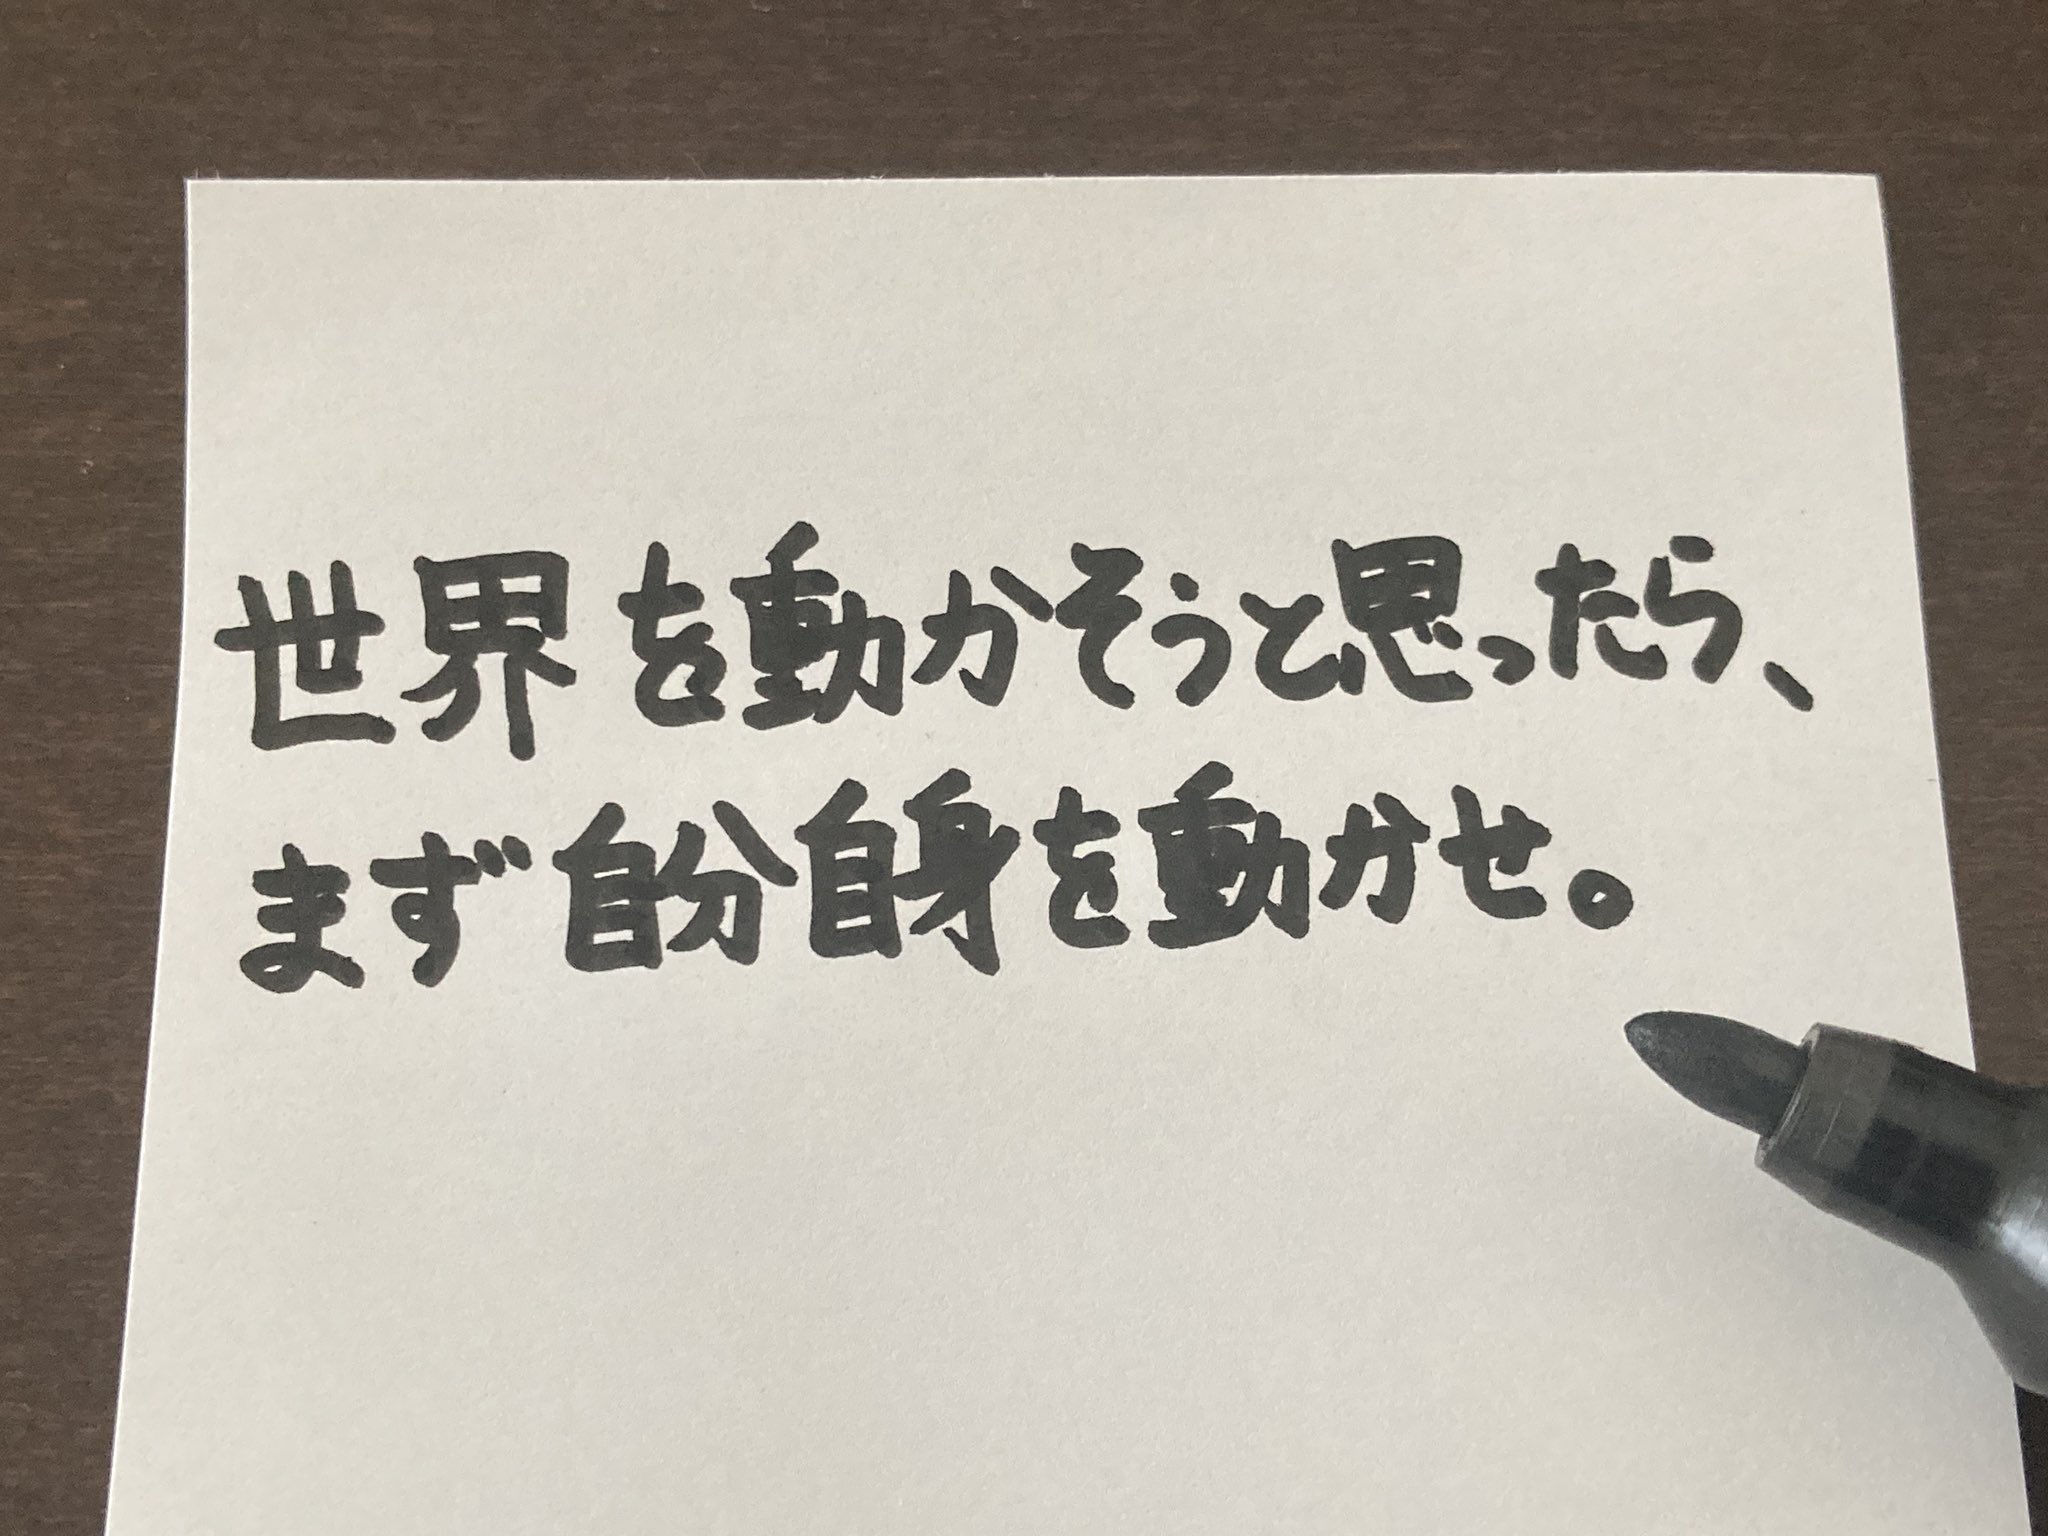 世界を動かそうと思ったら、
まず自分自身を動かせ。